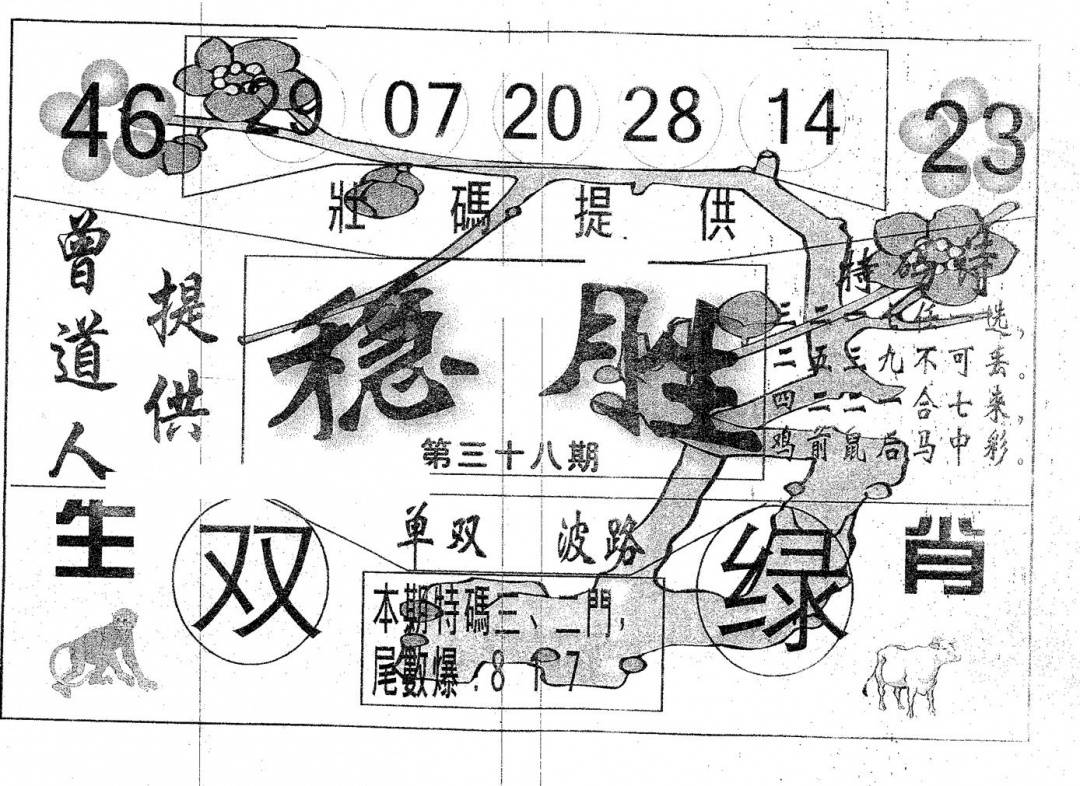 46 29 07 20 28 14 23
壯碼提供
曾道人
提供
稳胜
第三十八期
特码诗
三二一七任一选，
二五三九不可丢。
四二二一合七来，
鸡前鼠后马中彩。
生肖
单双 波路
双 绿
本期特碼三、二門，
尾數爆：8 1 7